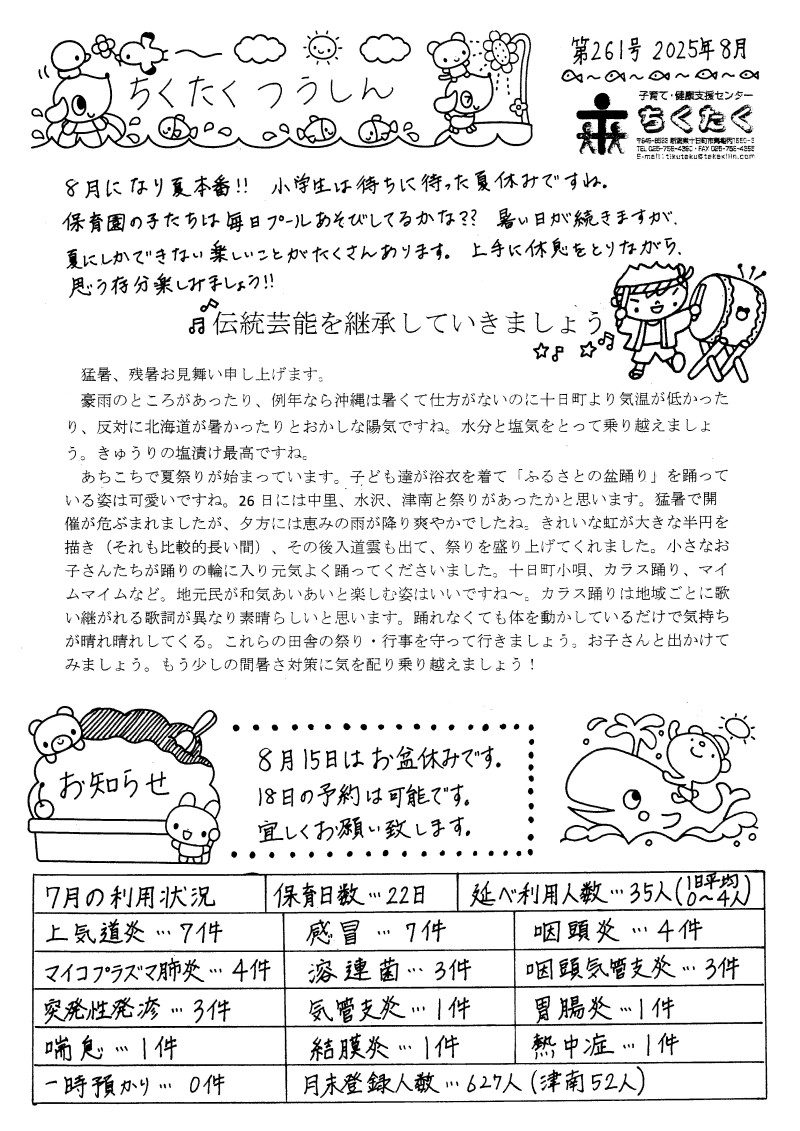 ちくたくつうしん
第261号 2025年8月
子育て・健康支援センター
ちくたく
8月になり夏本番!! 小学生は待ちに待った夏休みですね。
保育園の子たちは毎日プールあそびしてるかな?? 暑い日が続きますが、
夏にしかできない楽しいことがたくさんあります。 上手に休息をとりながら、
思う存分楽しみましょう!!
♫伝統芸能を継承していきましょう♫
猛暑、残暑お見舞い申し上げます。
豪雨のところがあったり、例年なら沖縄は暑くて仕方がないのに十日町より気温が低かった
り、反対に北海道が暑かったりとおかしな陽気ですね。水分と塩気をとって乗り越えましょ
う。きゅうりの塩漬け最高ですね。
あちこちで夏祭りが始まっています。子ども達が浴衣を着て「ふるさとの盆踊り」を踊って
いる姿は可愛いですね。26日には中里、水沢、津南と祭りがあったかと思います。猛暑で開
催が危ぶまれましたが、夕方には恵みの雨が降り爽やかでしたね。きれいな虹が大きな半円を
描き（それも比較的長い間）、その後入道雲も出て、祭りを盛り上げてくれました。小さなお
子さんたちが踊りの輪に入り元気よく踊ってくださいました。十日町小唄、カラス踊り、マイ
ムマイムなど。地元民が和気あいあいと楽しむ姿はいいですね～。カラス踊りは地域ごとに歌
い継がれる歌詞が異なり素晴らしいと思います。踊れなくても体を動かしているだけで気持ち
が晴れ晴れしてくる。これらの田舎の祭り・行事を守って行きましょう。お子さんと出かけて
みましょう。もう少しの間暑さ対策に気を配り乗り越えましょう！
お知らせ
8月15日はお盆休みです。
18日の予約は可能です。
宜しくお願い致します。
7月の利用状況 保育日数…22日 延べ利用人数…35人(1日平均0～4人)
上気道炎…7件 感冒…7件 咽頭炎…4件
マイコプラズマ肺炎…4件 溶連菌…3件 咽頭気管支炎…3件
突発性発疹…3件 気管支炎…1件 胃腸炎…1件
喘息…1件 結膜炎…1件 熱中症…1件
一時預かり…0件 月末登録人数…627人(津南52人)